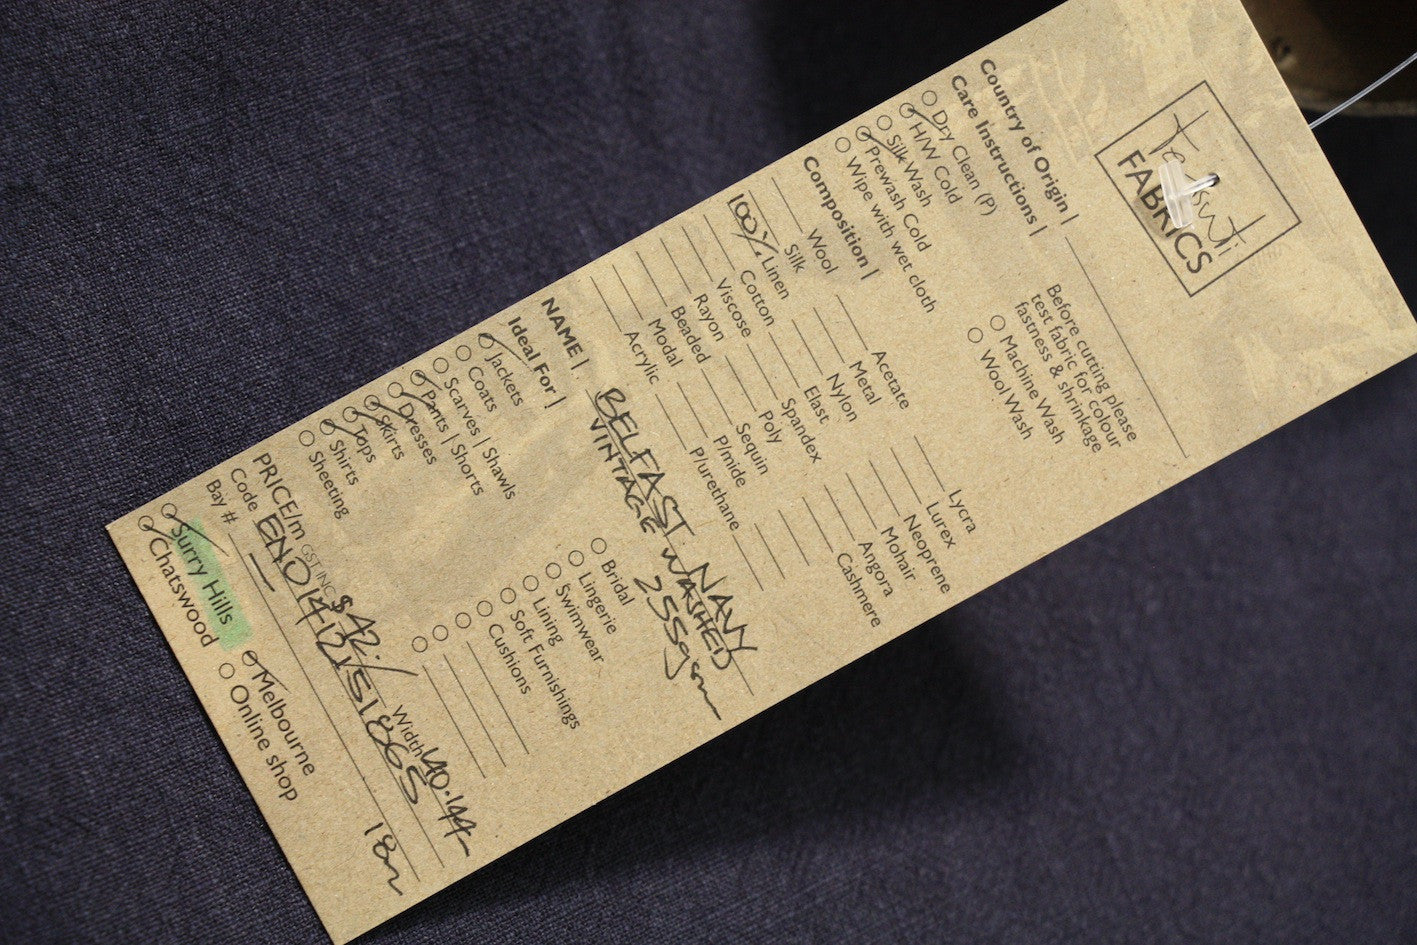 Tessuti
FABRICS
Country of Origin |
Care Instructions |
Dry Clean (P)
H/W Cold
Silk Wash
Prewash Cold
Wipe with wet cloth
Before cutting please
test fabric for colour
fastness & shrinkage
Machine Wash
Wool Wash
Composition |
Wool
Silk
100% Linen
Cotton
Viscose
Rayon
Beaded
Modal
Acrylic
Acetate
Metal
Nylon
Elast
Spandex
Poly
Sequin
P/mide
P/urethane
Lycra
Lurex
Neoprene
Mohair
Angora
Cashmere
NAME | BELFAST NAVY
VINTAGE WASHED
255gsm
Ideal For |
Jackets
Coats
Scarves | Shawls
Pants | Shorts
Dresses
Skirts
Tops
Shirts
Sheeting
Bridal
Lingerie
Swimwear
Lining
Soft Furnishings
Cushions
PRICE/m GST INC $42./ Width 140.144
Code
Bay #
18m
Surry Hills
Chatswood
Melbourne
Online shop